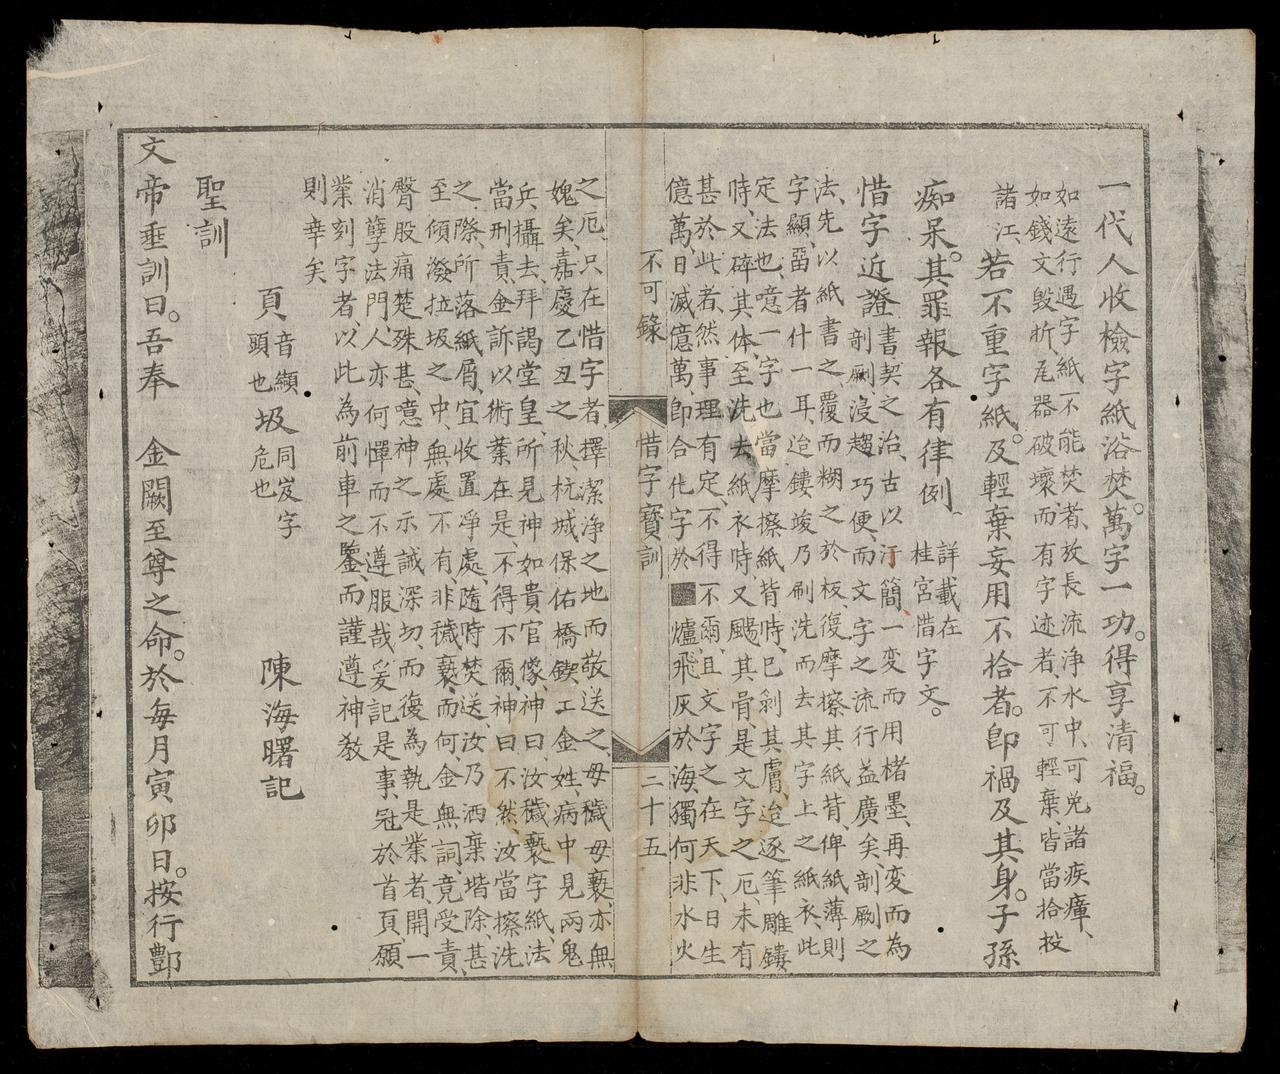 一代人收檢字紙浴焚。萬字一功。得享清福。
如遠行遇字紙不能焚者、放長流淨水中、可免諸疾瘴、
如錢文毀折、瓦器破壞而有字迹者、不可輕棄、皆當拾投
諸江、若不重字紙。及輕棄妄用不拾者。卽禍及其身。子孫
痴呆。其罪報各有律例、詳載在
桂宮惜字文。
惜字近證書契之治、古以汗簡、一変而用楮墨、再変而為
剞劂、浸趨巧便、而文字之流行益廣矣、剞劂之
法、先以紙書之、覆而糊之於板、復摩擦其紙背、俾紙薄則
字顯、畱者什一耳、迨鏤竣乃刷洗而去其字上之紙衣、此
定法也、噫一字也、當摩擦紙背時、已剝其膚、迨逐筆雕鏤
時、又碎其体、至洗去紙衣時、又颺其骨、是文字之厄、未有
甚於此者、然事理有定、不得不爾、且文字之在天下、日生
億萬、日滅億萬、卽合化字於■爐飛灰於海、獨何非水火
不可錄
惜字寶訓
二十五
之厄、只在惜字者、擇潔浄之地而敬送之、毋穢毋褻、亦無
媿矣、嘉慶乙丑之秋、杭城保佑橋鍥工金姓、病中見兩鬼
兵攝去、拜謁堂皇、所見神如貴官像、神曰、汝穢褻字紙、法
當刑責、金訴以術業在是、不得不爾、神曰不然、汝當擦洗
之際、所落紙屑、宜收置爭處、隨時焚送、汝乃洒棄堦除、甚
至傾潑拉圾之中、無處不有、非穢褻而何、金無詞、竟受責、
臀股痛楚殊甚、噫神之示誡深切、而復為執是業者、開一
消孽法門、人亦何憚而不遵服哉、爰記是事、冠於首頁、願
業刻字者、以此為前車之鑒、而謹遵神教
則幸矣
頁音纈頭也圾同岌字危也
陳海曙記
聖訓
文帝垂訓曰。吾奉 金闕至尊之命。於每月寅卯日。按行酆